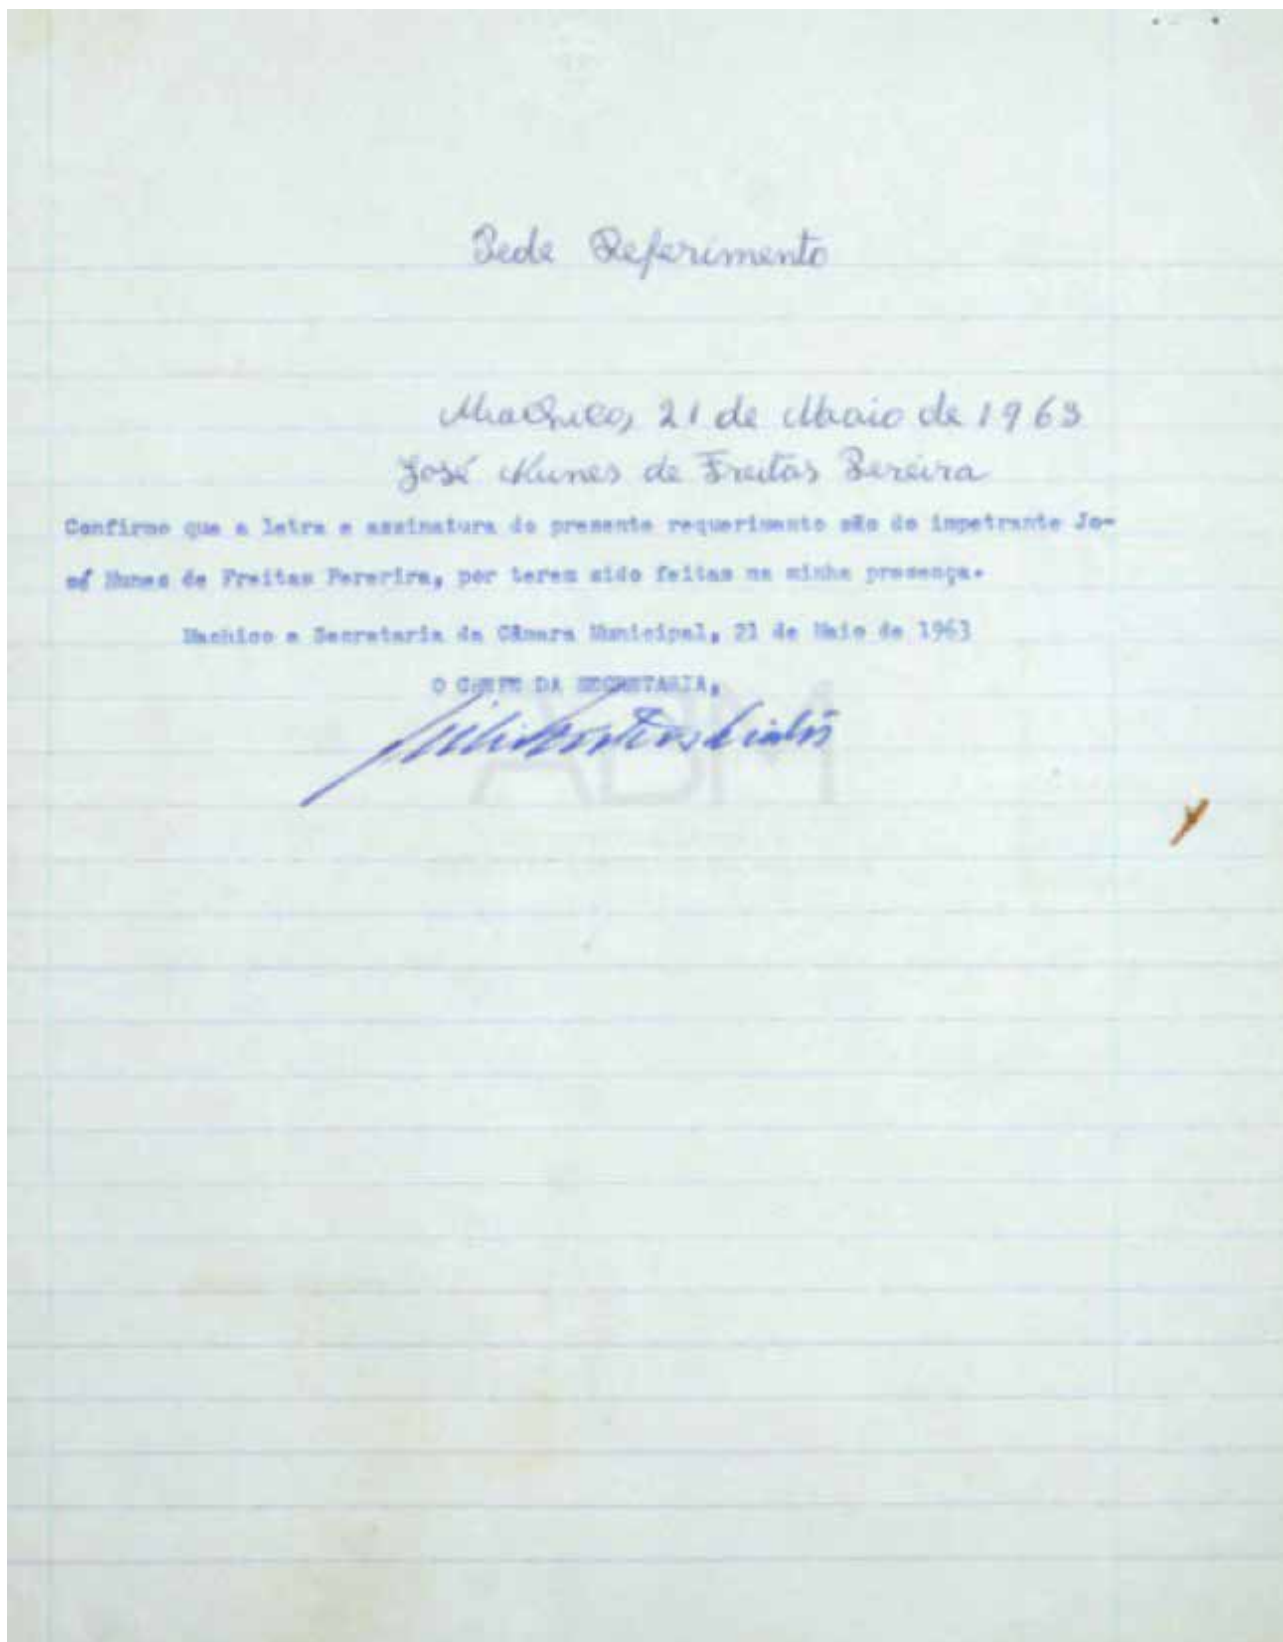 Pede Deferimento
Machico, 21 de Maio de 1963
José Nunes de Freitas Pereira
Confirmo que a letra e assinatura do presente requerimento são do impetrante Jo-
sé Nunes de Freitas Pererira, por terem sido feitas na minha presença.
Machico e Secretaria da Câmara Municipal, 21 de Maio de 1963
O CHEFE DA SECRETARIA,
ABM